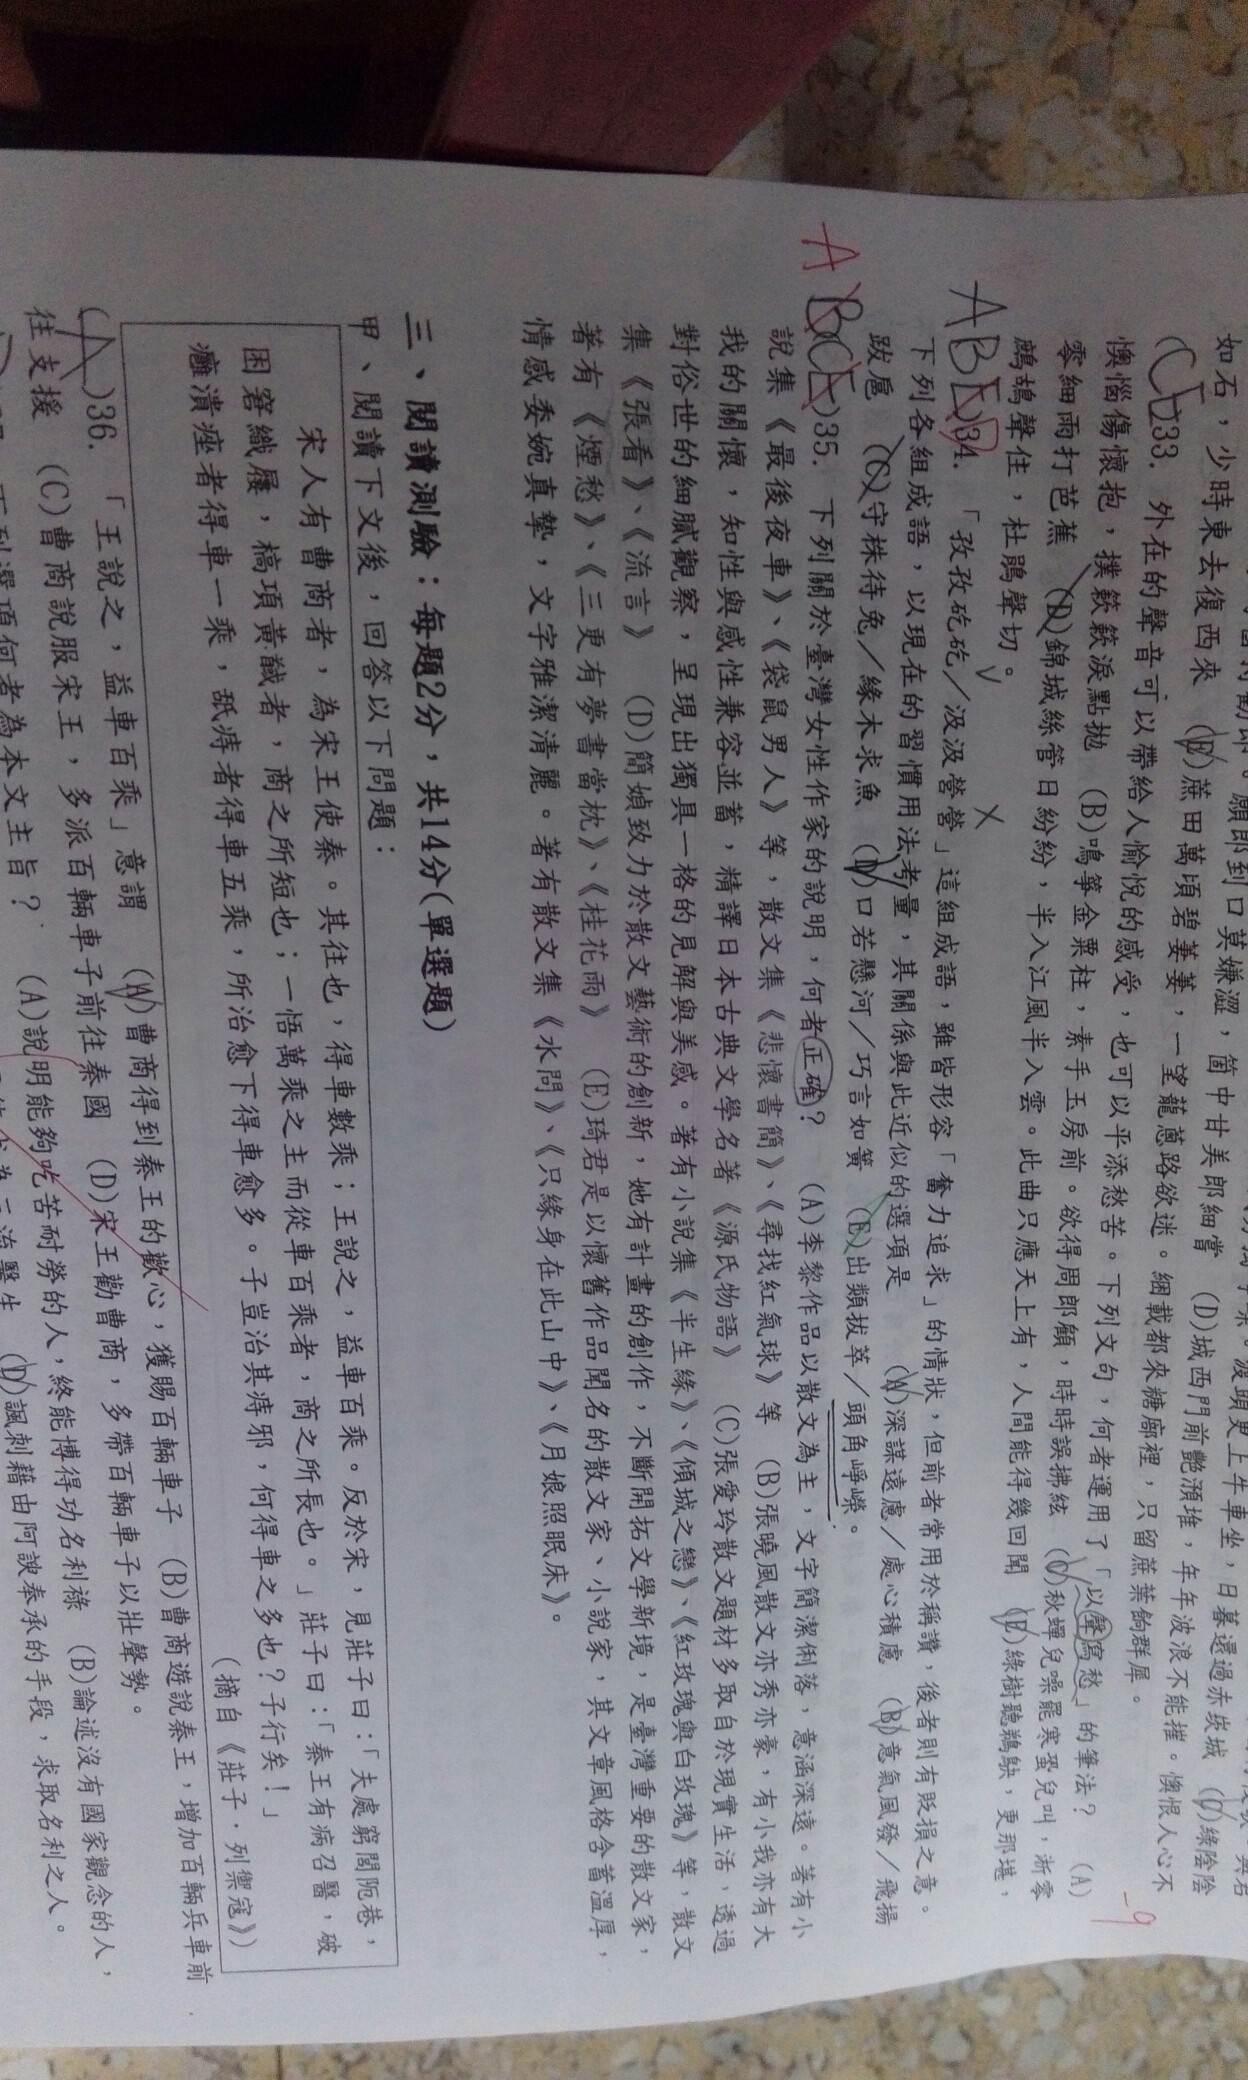 如石，少時東去復西來 (B)蔗田萬頃碧萋萋，一望龍蔥路欲迷。綑載都來糖廍裡，只留蔗葉餉群犀。
(CE)33. 外在的聲音可以帶給人愉悅的感受，也可以平添愁苦。下列文句，何者運用了「以聲寫愁」的筆法？ (A)
懊惱傷懷抱，撲簌簌淚點拋 (B)鳴箏金粟柱，素手玉房前。欲得周郎顧，時時誤拂絃 (C)秋蟬兒噪罷寒蛩兒叫，淅零
零細雨打芭蕉 (D)錦城絲管日紛紛，半入江風半入雲。此曲只應天上有，人間能得幾回聞 (E)綠樹聽鵜鴃，更那堪，
鷓鴣聲住，杜鵑聲切。
ABE)34. 「孜孜矻矻／汲汲營營」這組成語，雖皆形容「奮力追求」的情狀，但前者常用於稱讚，後者則有貶損之意。
下列各組成語，以現在的習慣用法考量，其關係與此近似的選項是 (A)深謀遠慮／處心積慮 (B)意氣風發／飛揚
跋扈 (C)守株待兔／緣木求魚 (D)口若懸河／巧言如簧 (E)出類拔萃／頭角崢嶸。
A BCE)35. 下列關於臺灣女性作家的說明，何者正確？ (A)李黎作品以散文為主，文字簡潔俐落，意涵深遠。著有小
說集《最後夜車》、《袋鼠男人》等，散文集《悲懷書簡》、《尋找紅氣球》等 (B)張曉風散文亦秀亦豪，有小我亦有大
我的關懷，知性與感性兼容並蓄，精譯日本古典文學名著《源氏物語》 (C)張愛玲散文題材多取自於現實生活，透過
對俗世的細膩觀察，呈現出獨具一格的見解與美感。著有小說集《半生緣》、《傾城之戀》、《紅玫瑰與白玫瑰》等，散文
集《張看》、《流言》 (D)簡媜致力於散文藝術的創新，她有計畫的創作，不斷開拓文學新境，是臺灣重要的散文家，
著有《煙愁》、《三更有夢書當枕》、《桂花雨》 (E)琦君是以懷舊作品聞名的散文家、小說家，其文章風格含蓄溫厚，
情感委婉真摯，文字雅潔清麗。著有散文集《水問》、《只緣身在此山中》、《月娘照眠床》。
-9
三、閱讀測驗：每題2分，共14分(單選題)
甲、閱讀下文後，回答以下問題：
宋人有曹商者，為宋王使秦。其往也，得車數乘；王說之，益車百乘。反於宋，見莊子曰：「夫處窮閭阨巷，
困窘織屨，槁項黃馘者，商之所短也；一悟萬乘之主而從車百乘者，商之所長也。」莊子曰：「秦王有病召醫，破
癰潰痤者得車一乘，舐痔者得車五乘，所治愈下得車愈多。子豈治其痔邪，何得車之多也？子行矣！」
（摘自《莊子．列禦寇》）
(A)36. 「王說之，益車百乘」意謂 (A)曹商得到秦王的歡心，獲賜百輛車子 (B)曹商遊說秦王，增加百輛兵車前
往支援 (C)曹商說服宋王，多派百輛車子前往秦國 (D)宋王勸曹商，多帶百輛車子以壯聲勢。
下列選項何者為本文主旨？ (A)說明能夠吃苦耐勞的人，終能博得功名利祿 (B)論述沒有國家觀念的人，
(D)諷刺藉由阿諛奉承的手段，求取名利之人。